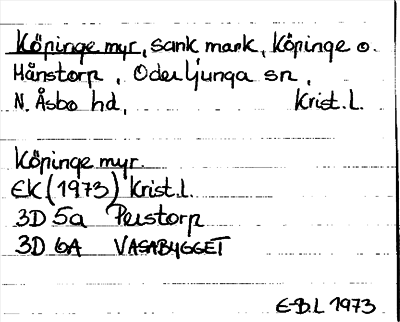 Köpinge myr, sank mark, Köpinge o.
Hånstorp, Oderljunga sn,
N. Åsbo hd, Krist. L.
Köpinge myr.
EK (1973) Krist. l.
3D 5a Perstorp
3D 6A VASABYGGET
E-B.L 1973